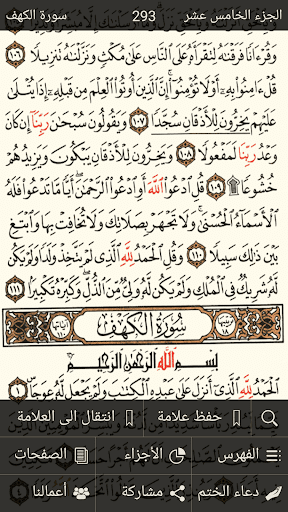 الجزء الخامس عشر 293 سورة الكهف
وَقُرْءَانًا فَرَقْنَٰهُ لِتَقْرَأَهُۥ عَلَى ٱلنَّاسِ عَلَىٰ مُكْثٍ وَنَزَّلْنَٰهُ تَنزِيلًا
١٠٦ قُلْ ءَامِنُوا۟ بِهِۦٓ أَوْ لَا تُؤْمِنُوٓا۟ إِنَّ ٱلَّذِينَ أُوتُوا۟ ٱلْعِلْمَ مِن قَبْلِهِۦٓ إِذَا يُتْلَىٰ
عَلَيْهِمْ يَخِرُّونَ لِلْأَذْقَانِ سُجَّدًا ١٠٧ وَيَقُولُونَ سُبْحَٰنَ رَبِّنَآ إِن كَانَ
وَعْدُ رَبِّنَا لَمَفْعُولًا ١٠٨ وَيَخِرُّونَ لِلْأَذْقَانِ يَبْكُونَ وَيَزِيدُهُمْ
خُشُوعًا ۩ ١٠٩ قُلِ ٱدْعُوا۟ ٱللَّهَ أَوِ ٱدْعُوا۟ ٱلرَّحْمَٰنَ أَيًّا مَّا تَدْعُوا۟ فَلَهُ
ٱلْأَسْمَآءُ ٱلْحُسْنَىٰ وَلَا تَجْهَرْ بِصَلَاتِكَ وَلَا تُخَافِتْ بِهَا وَٱبْتَغِ
بَيْنَ ذَٰلِكَ سَبِيلًا ١١٠ وَقُلِ ٱلْحَمْدُ لِلَّهِ ٱلَّذِى لَمْ يَتَّخِذْ وَلَدًا وَلَمْ يَكُن
لَّهُۥ شَرِيكٌ فِى ٱلْمُلْكِ وَلَمْ يَكُن لَّهُۥ وَلِىٌّ مِّنَ ٱلذُّلِّ وَكَبِّرْهُ تَكْبِيرًۢا ١١١
سُورَةُ الكَهْفِ
بِسْمِ ٱللَّهِ ٱلرَّحْمَٰنِ ٱلرَّحِيمِ
ٱلْحَمْدُ لِلَّهِ ٱلَّذِىٓ أَنزَلَ عَلَىٰ عَبْدِهِ ٱلْكِتَٰبَ وَلَمْ يَجْعَل لَّهُۥ عِوَجَا ١
حفظ علامة انتقال الى العلامة
الفهرس الأجزاء الصفحات
دعاء الختم مشاركة أعمالنا